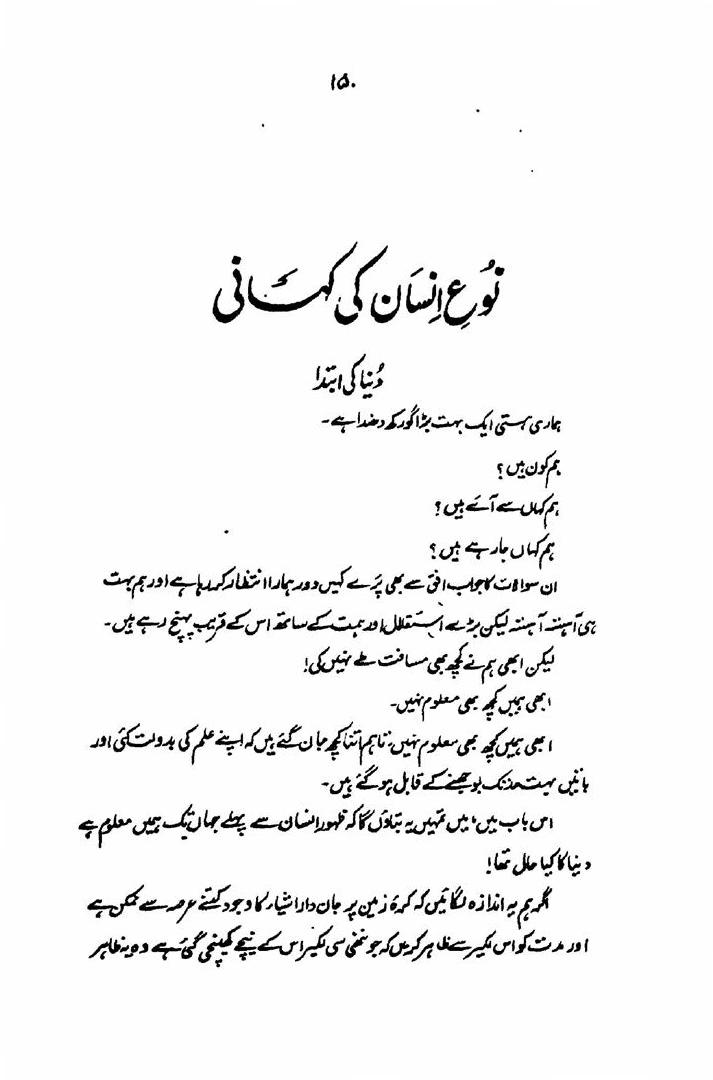 ۱۵۰
نُوعِ اِنسَان کی کہَانی
دُنیا کی ابتدا
ہماری ہستی ایک بہت بڑا گورکھ دھندا ہے۔
ہم کون ہیں؟
ہم کہاں سے آئے ہیں؟
ہم کہاں جا رہے ہیں؟
ان سوالات کا جواب افق سے بھی پَرے کہیں دور ہمارا انتظار کر رہا ہے اور ہم بہت
ہی آہستہ آہستہ لیکن بڑے استقلال اور ہمت کے ساتھ اس کے قریب پہنچ رہے ہیں۔
لیکن ابھی ہم نے کچھ بھی مسافت طے نہیں کی!
ابھی ہمیں کچھ بھی معلوم نہیں۔
ابھی ہمیں کچھ بھی معلوم نہیں، تاہم اتنا کچھ جان گئے ہیں کہ اپنے علم کی بدولت کئی اور
باتیں بہت حد تک بوجھنے کے قابل ہو گئے ہیں۔
اس باب میں، میں تمہیں یہ بتاؤں گا کہ ظہور انسان سے پہلے جہاں تک ہمیں معلوم ہے
دنیا کا کیا حال تھا!
اگر ہم یہ اندازہ لگائیں کہ کرۂ زمین پر جان دار اشیاء کا وجود کتنے عرصہ سے ممکن ہے
اور مدت کو اس لکیر سے ظاہر کریں کہ جو ننھی سی لکیر اس کے نیچے کھینچی گئی ہے وہ یہ ظاہر